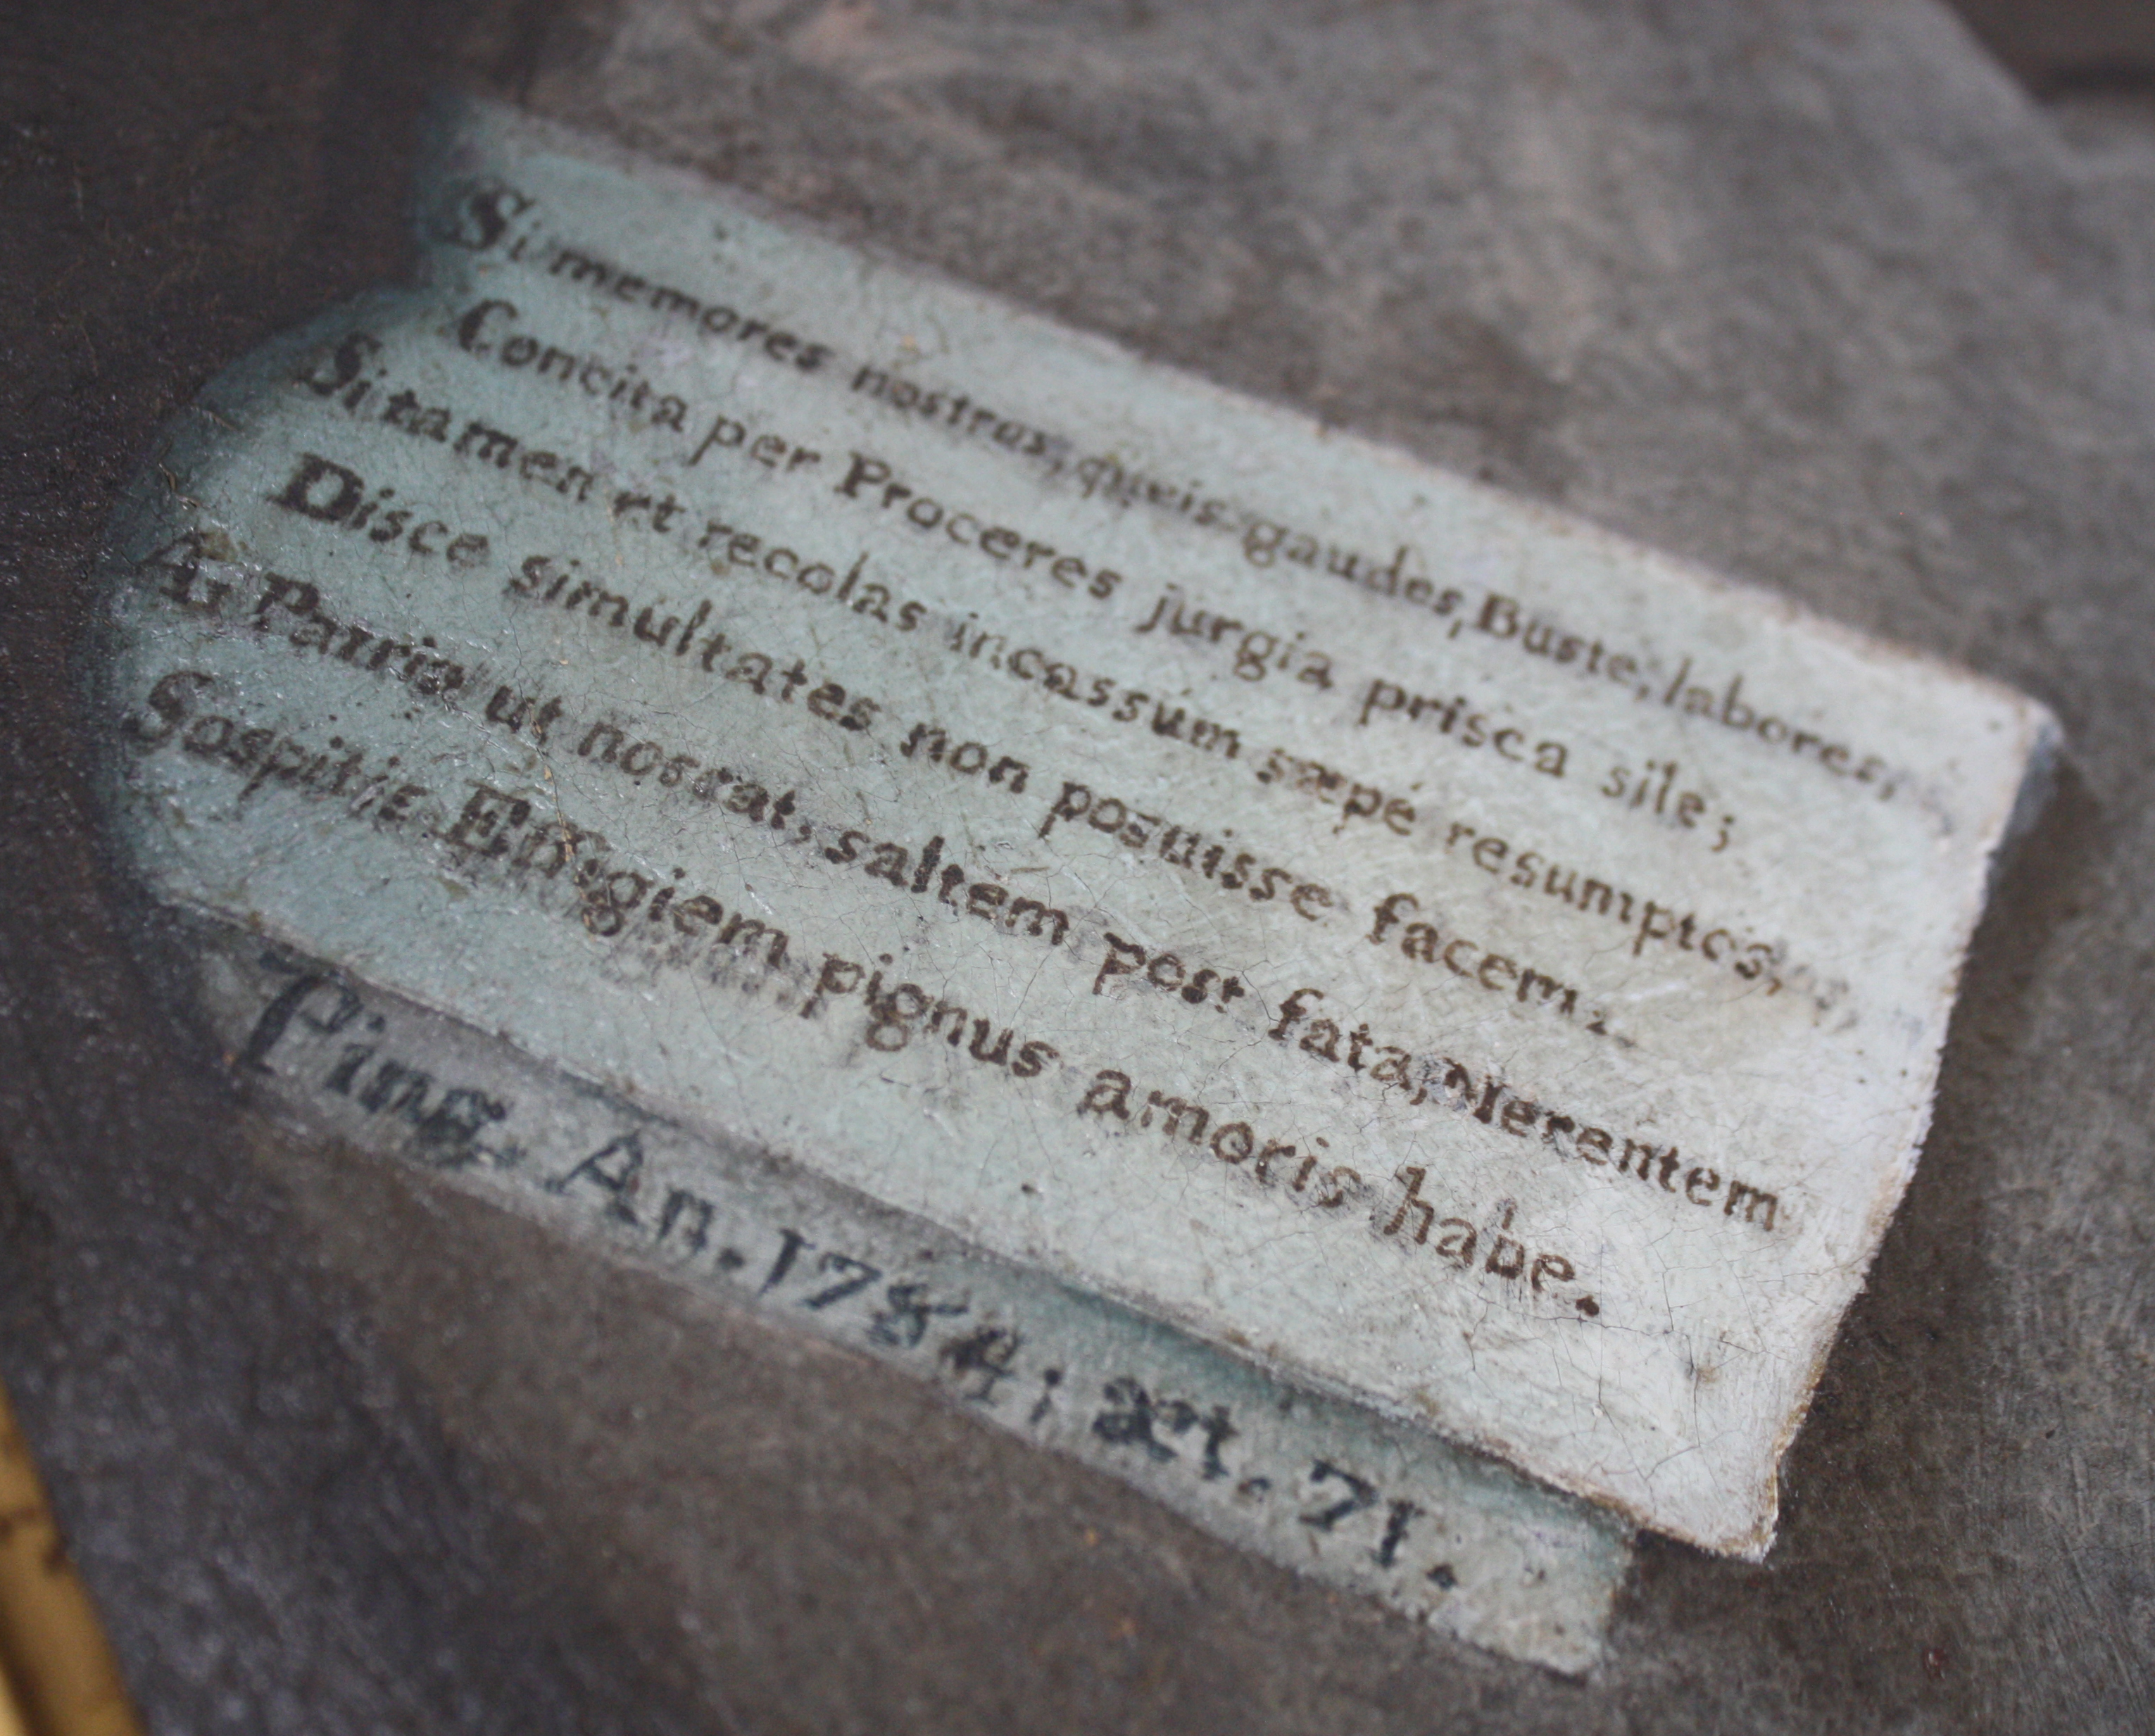 Si memores nostros, queis gaudes, Buste, labores,
Concita per Proceres jurgia prisca sile;
Si tamen et recolas incassum sæpé resumptos,
Disce simultates non posuisse facem:
A, Patria ut noscat, saltem post fata, Merentem
Sospitis Effigiem pignus amoris habe.
Ping. An. 1784; æt. 71.